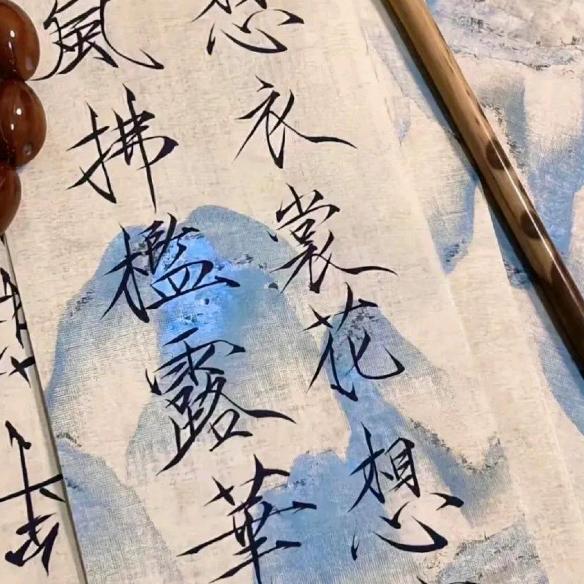 想衣裳花想
風拂檻露華